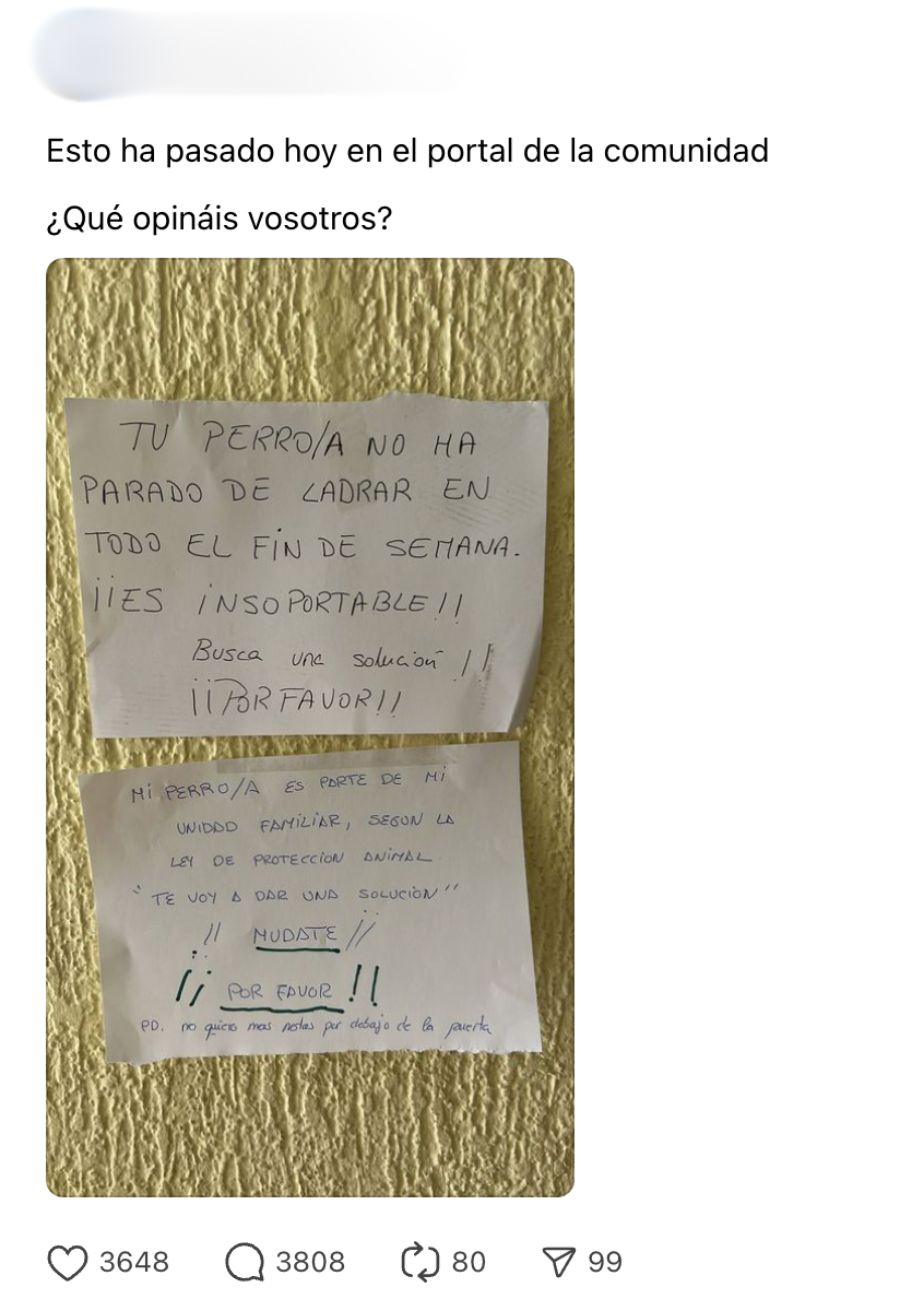 Esto ha pasado hoy en el portal de la comunidad
¿Qué opináis vosotros?
TU PERRO/A NO HA
PARADO DE LADRAR EN
TODO EL FIN DE SEMANA.
¡¡ES INSOPORTABLE!!
Busca una solución!!
¡¡POR FAVOR!!
MI PERRO/A ES PARTE DE MI
UNIDAD FAMILIAR, SEGUN LA
LEY DE PROTECCION ANIMAL
"TE VOY A DAR UNA SOLUCIÓN"
¡¡ MUDATE !!
¡¡ POR FAVOR !!
PD. no quiero mas notas por debajo de la puerta
3648 3808 80 99